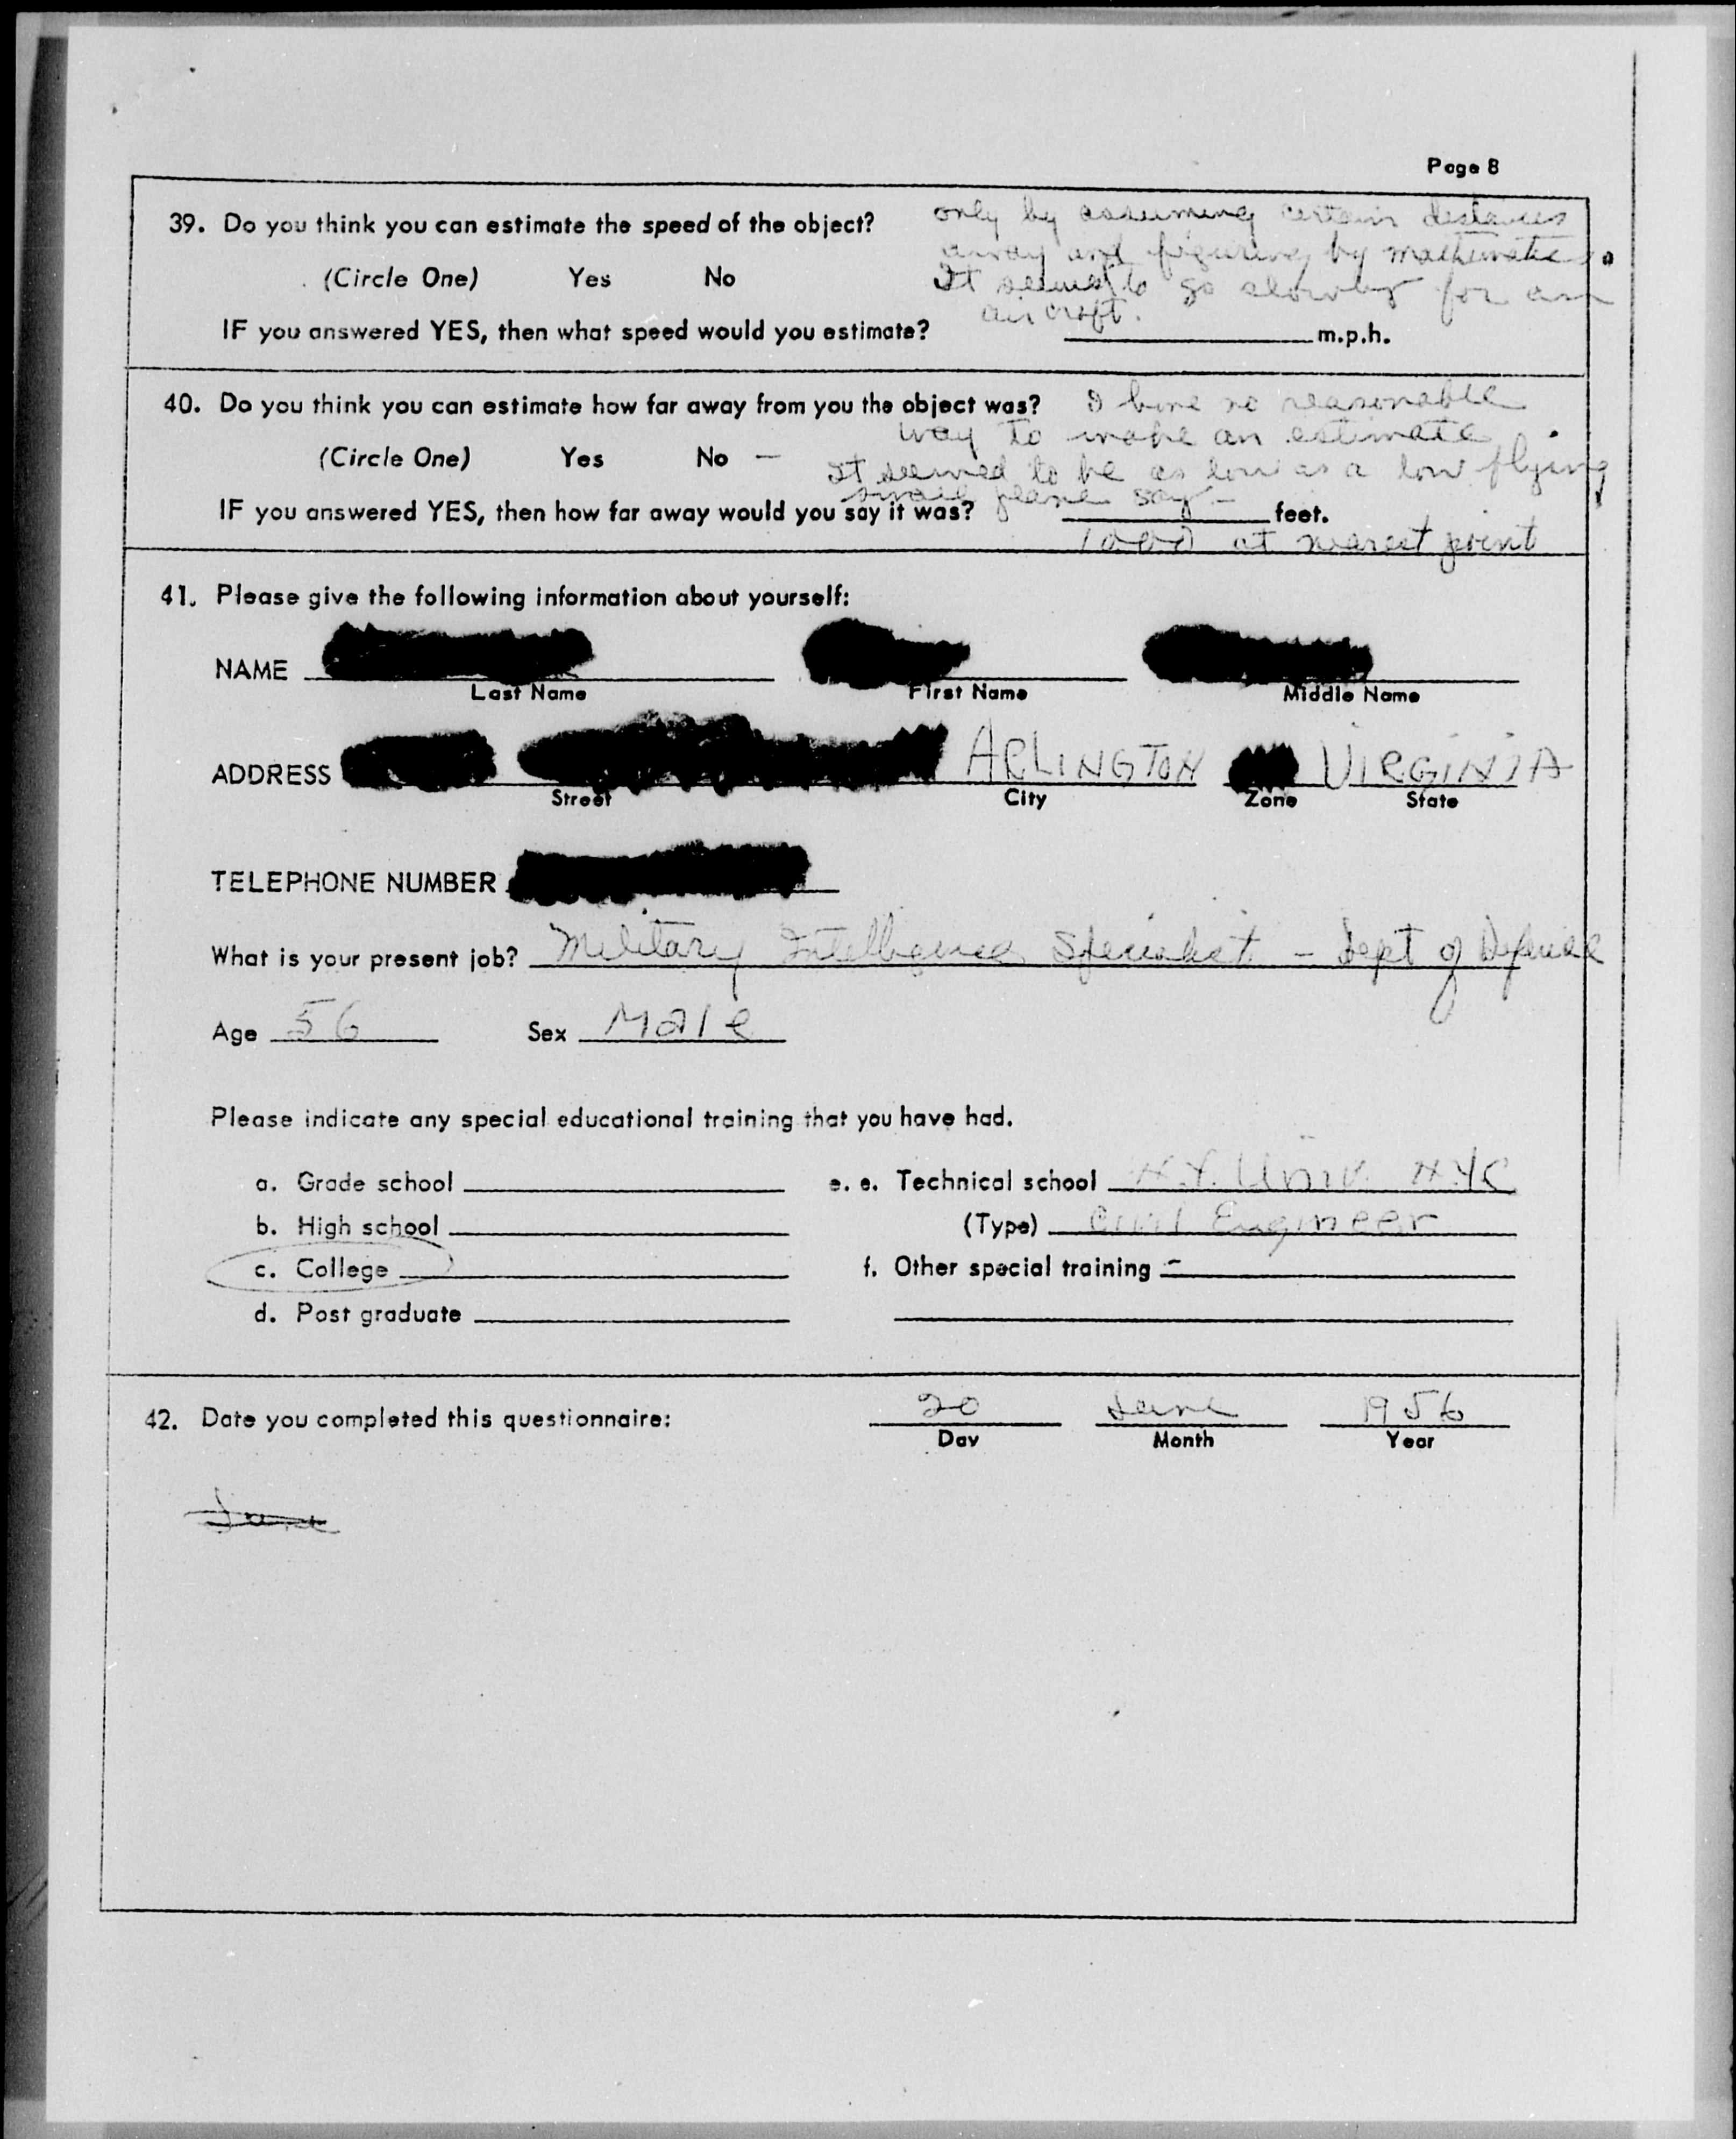 Page 8
39. Do you think you can estimate the speed of the object?
only by assuming certain distances
away and figuring by mathematics.
(Circle One) Yes No
It seemed to go slowly for an
air craft.
IF you answered YES, then what speed would you estimate? m.p.h.
40. Do you think you can estimate how far away from you the object was? I have no reasonable
way to make an estimate.
(Circle One) Yes No —
It seemed to be as low as a low flying
small plane say —
IF you answered YES, then how far away would you say it was? feet.
1000 at nearest point
41. Please give the following information about yourself:
NAME
Last Name First Name Middle Name
ADDRESS ARLINGTON VIRGINIA
Street City Zone State
TELEPHONE NUMBER
What is your present job? Military Intelligence Specialist - Dept of Defense
Age 56 Sex Male
Please indicate any special educational training that you have had.
a. Grade school e. e. Technical school N.Y. Univ. NYC
b. High school (Type) Civil Engineer
c. College f. Other special training -
d. Post graduate
42. Date you completed this questionnaire: 20 June 1956
Day Month Year
June